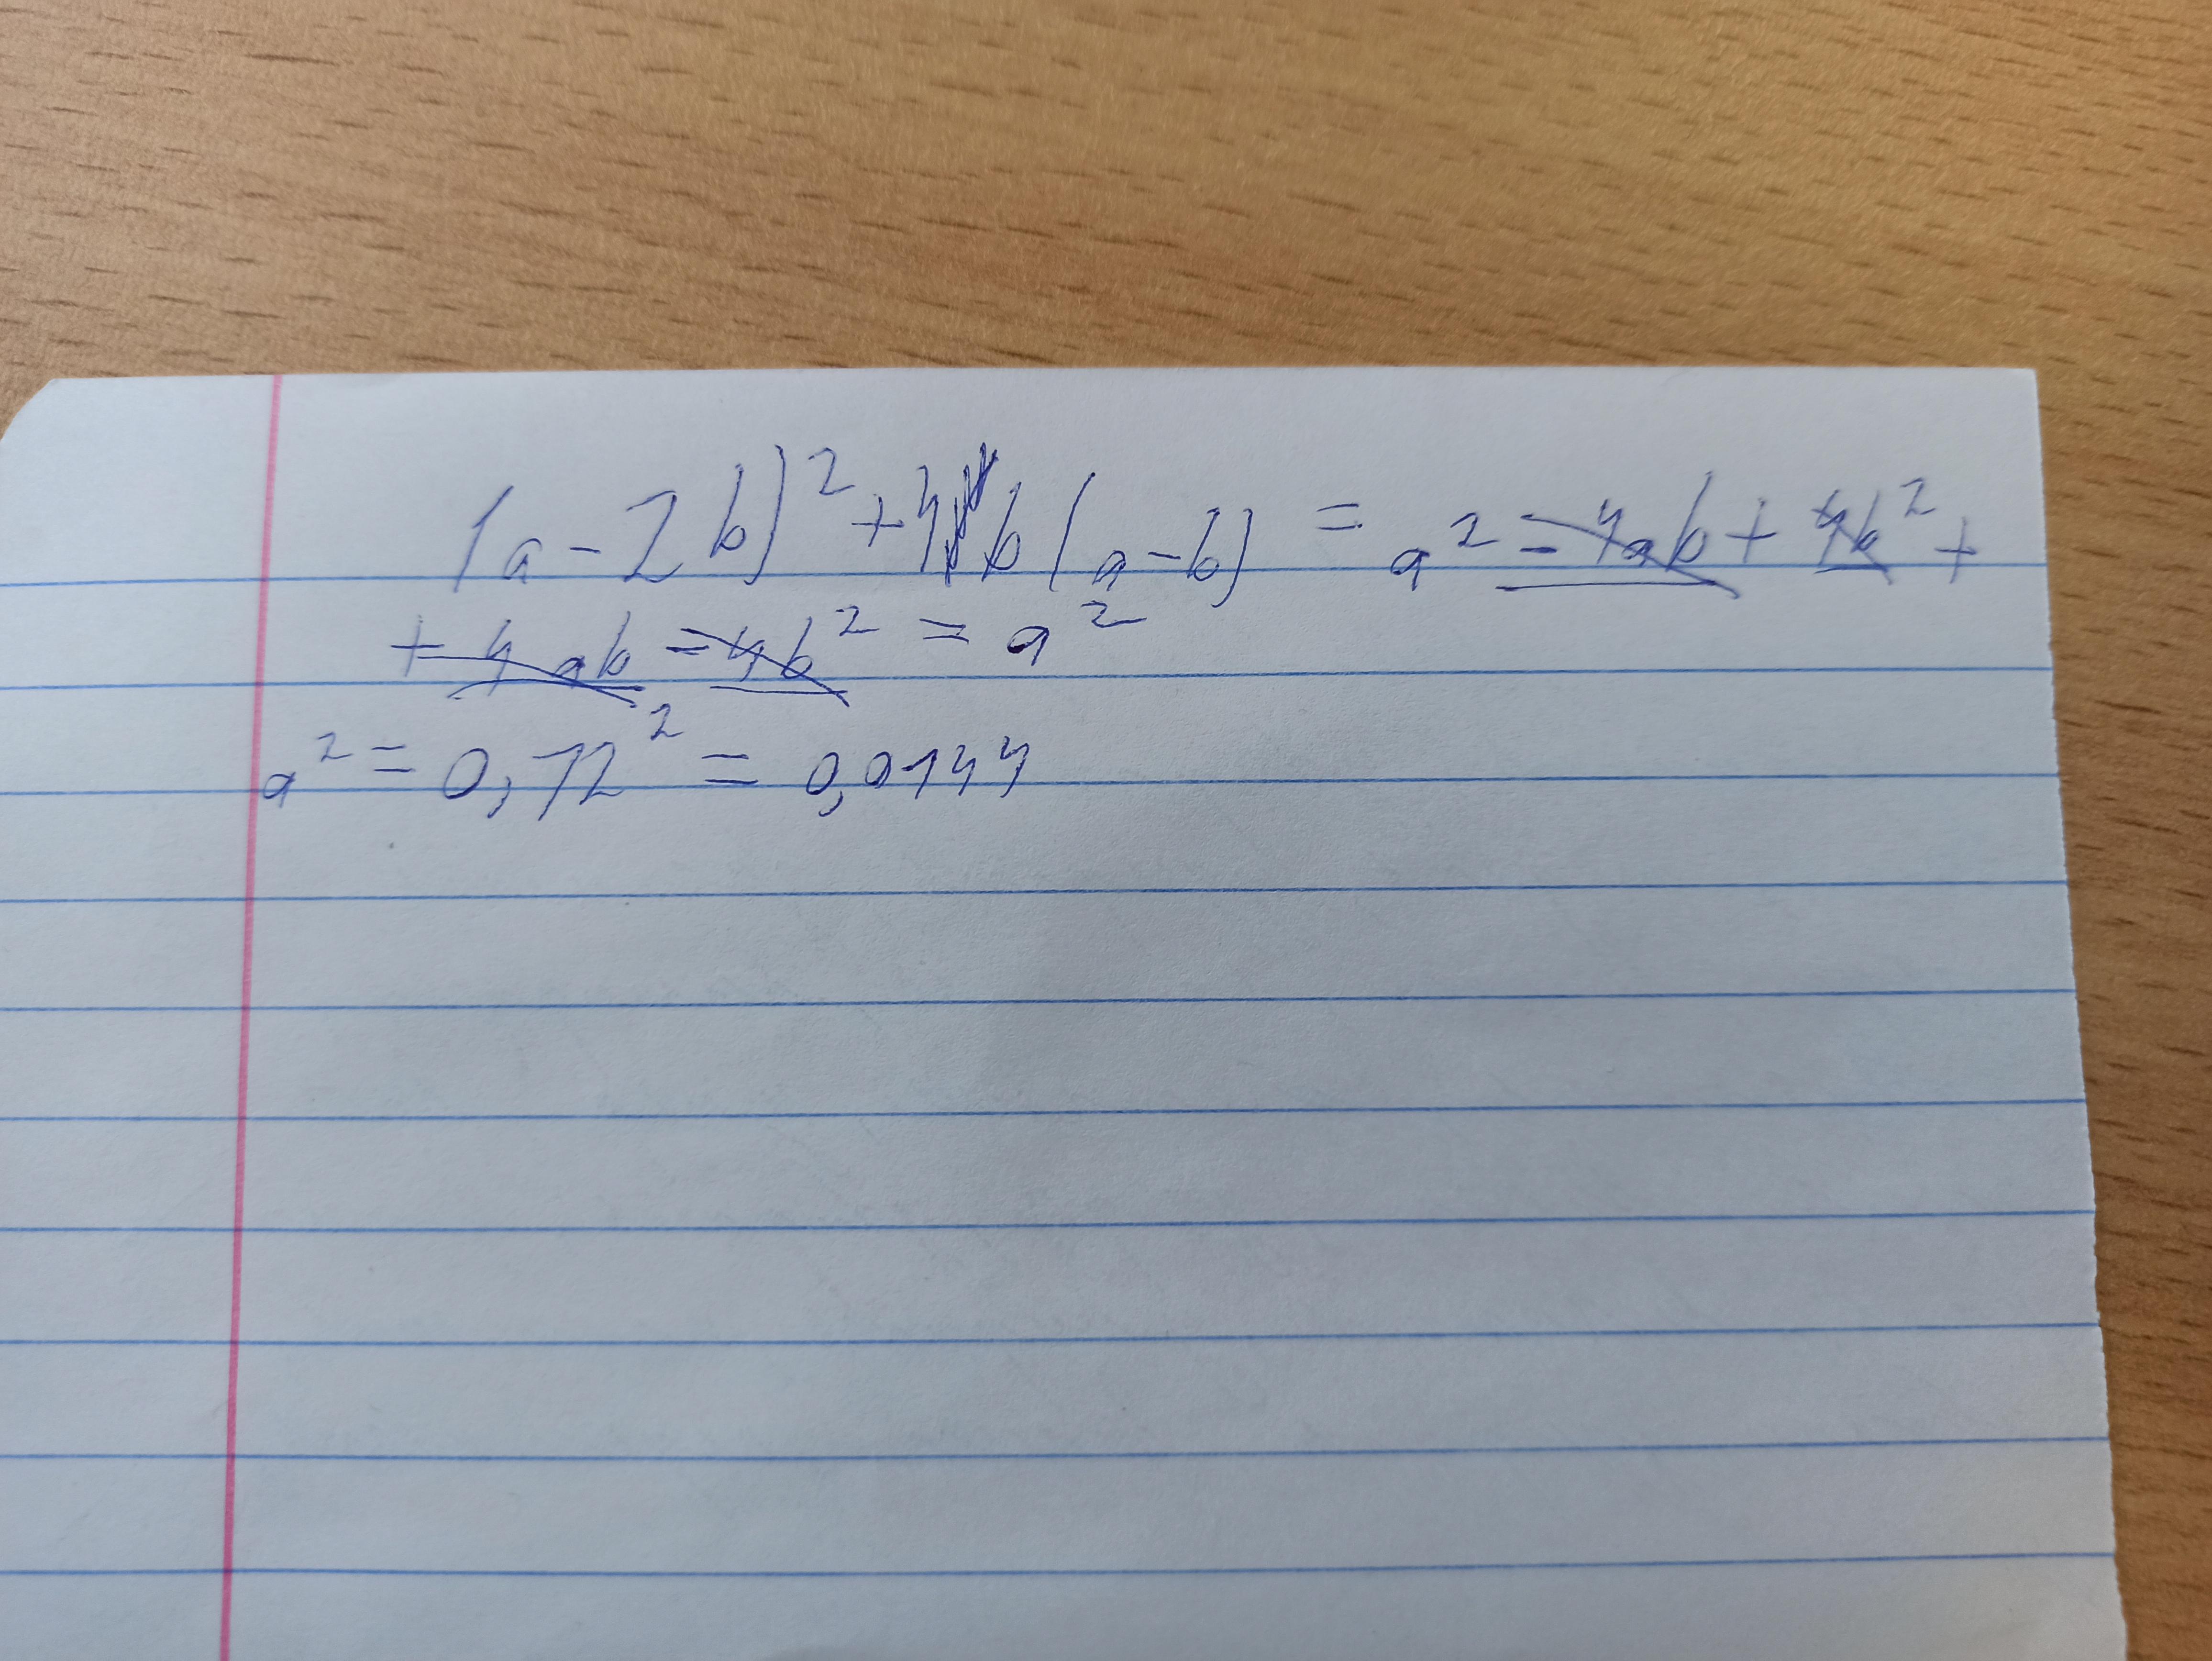 (a-2b)²+4b(a-b) = a²-4ab+4b²+
+4ab-4b² = a²
a² = 0,12² = 0,0144